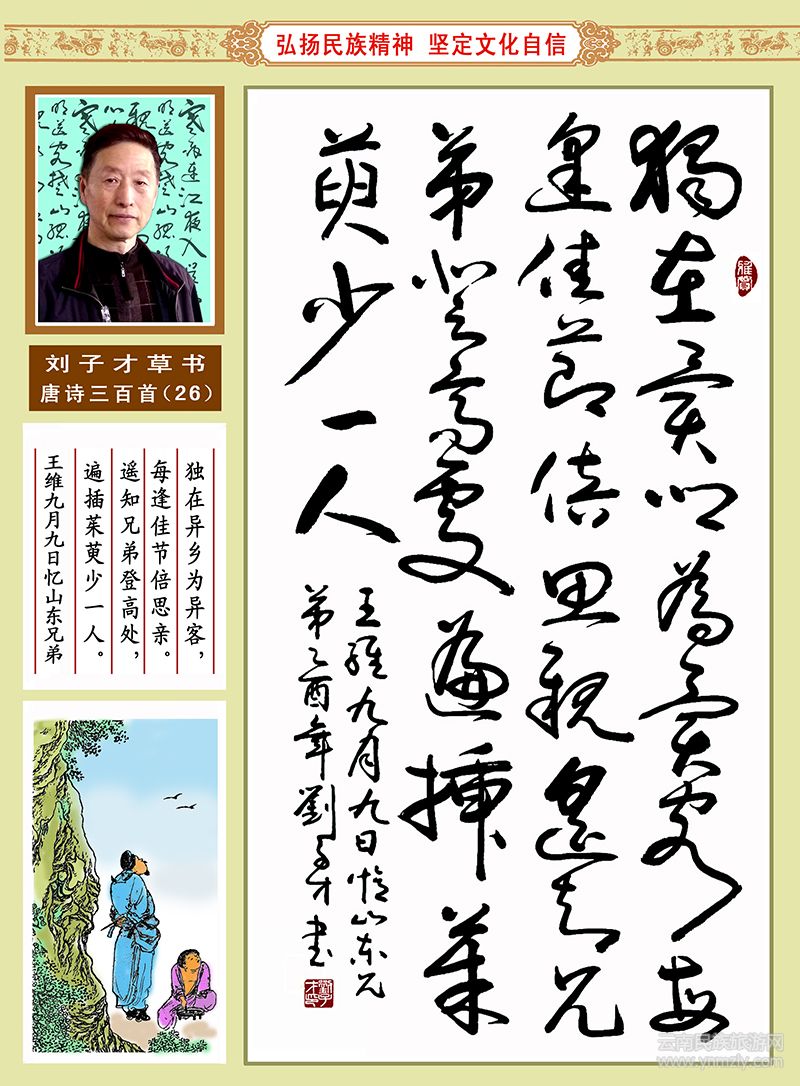 弘扬民族精神 坚定文化自信
刘子才草书
唐诗三百首(26)
独在异乡为异客，
每逢佳节倍思亲。
遥知兄弟登高处，
遍插茱萸少一人。
王维九月九日忆山东兄弟
獨在異鄉為異客每
逢佳節倍思親遙知兄
弟登高處遍插茱
萸少一人
王維九月九日憶山東兄
弟乙酉年劉子才書
雅賞
云南民族旅游网
www.ynmzly.com